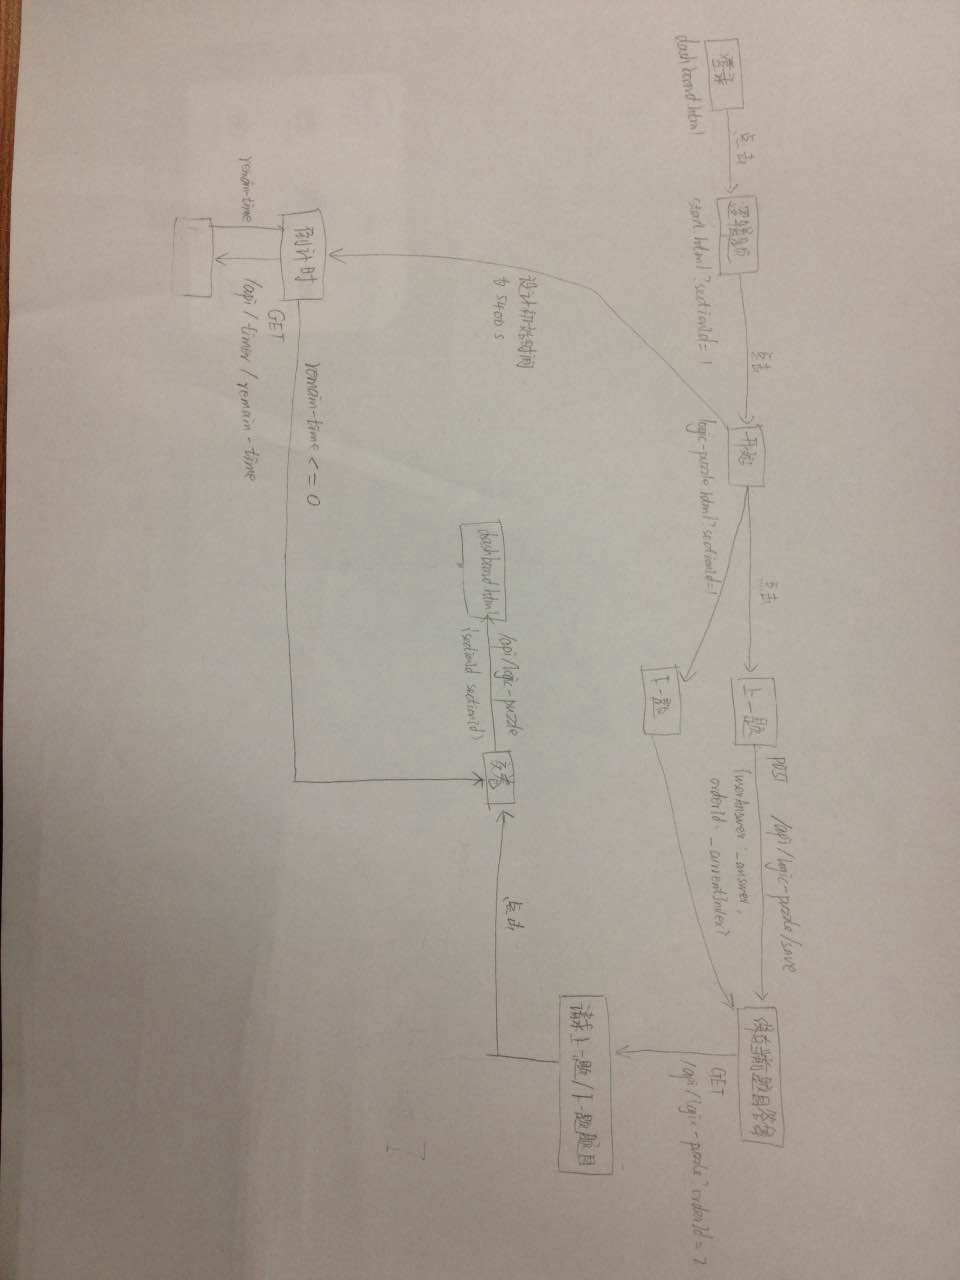 登录
dashboard.html
点击
逻辑题
start.html?sectionId=1
点击
开始
logic-puzzle.html?sectionId=1
点击
上一题
下一题
POST /api/logic-puzzle/save
{userAnswer:_answer,
orderId:_currentIndex}
保存当前题目答案
GET
/api/logic-puzzle?orderId=?
请求上一题/下一题题目
点击
交卷
/api/logic-puzzle
{sectionId:sectionId}
dashboard.html
设计开始时间
为5400s
倒计时
remain-time
GET
/api/timer/remain-time
remain-time<=0